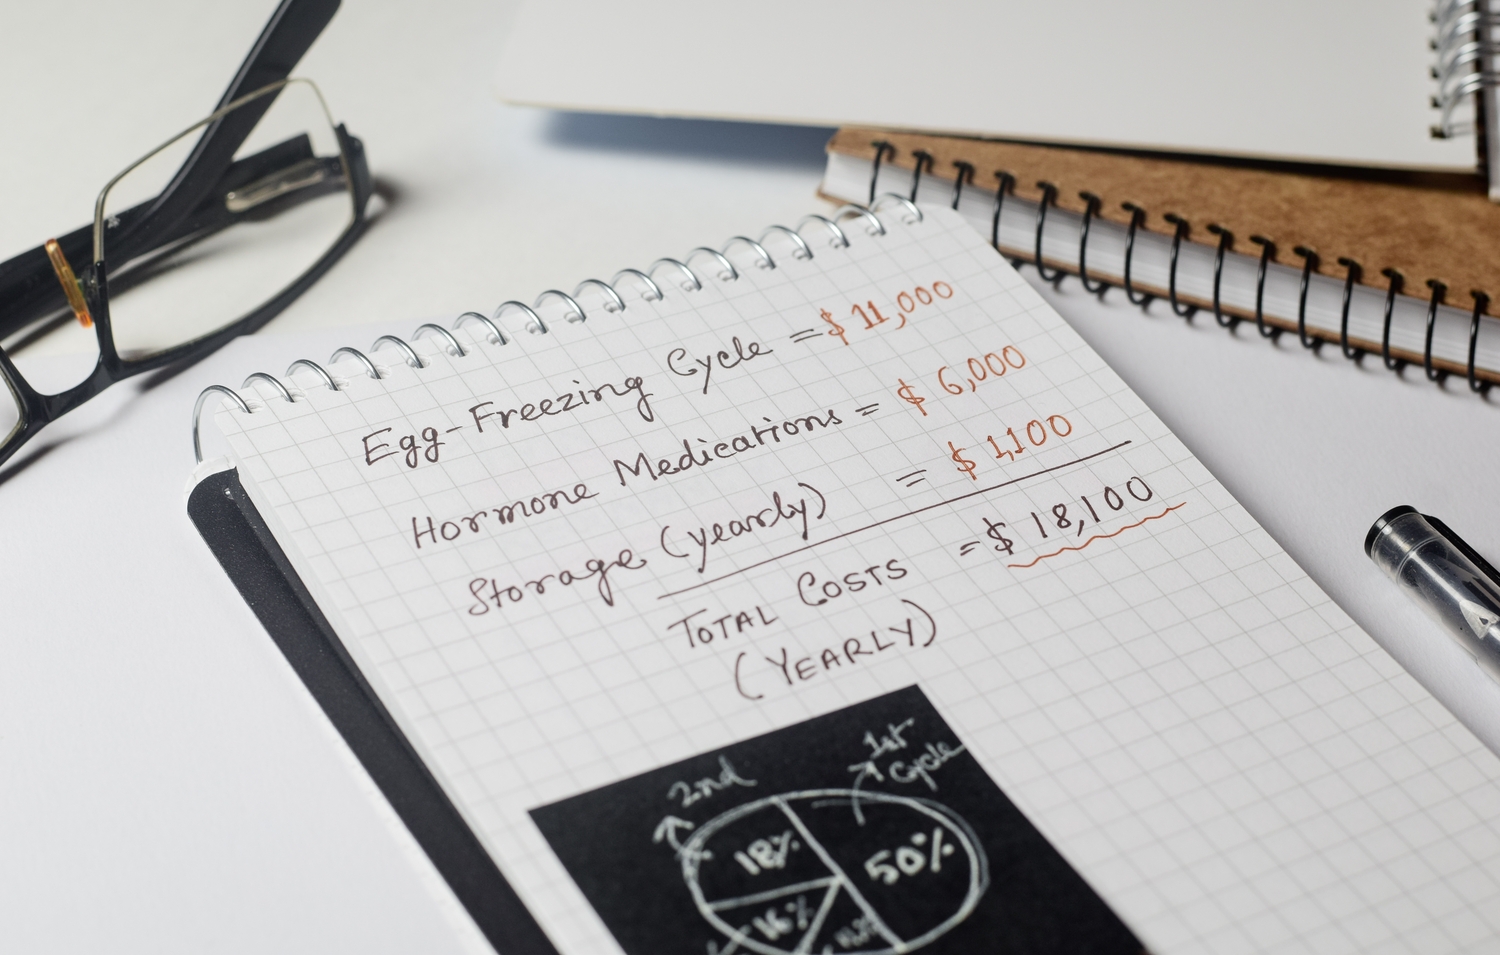 Egg-Freezing Cycle = $ 11,000
Hormone Medications = $ 6,000
Storage (yearly) = $ 1,100
TOTAL COSTS = $ 18,100
(YEARLY)
1st
Cycle
2nd
18%
50%
16%